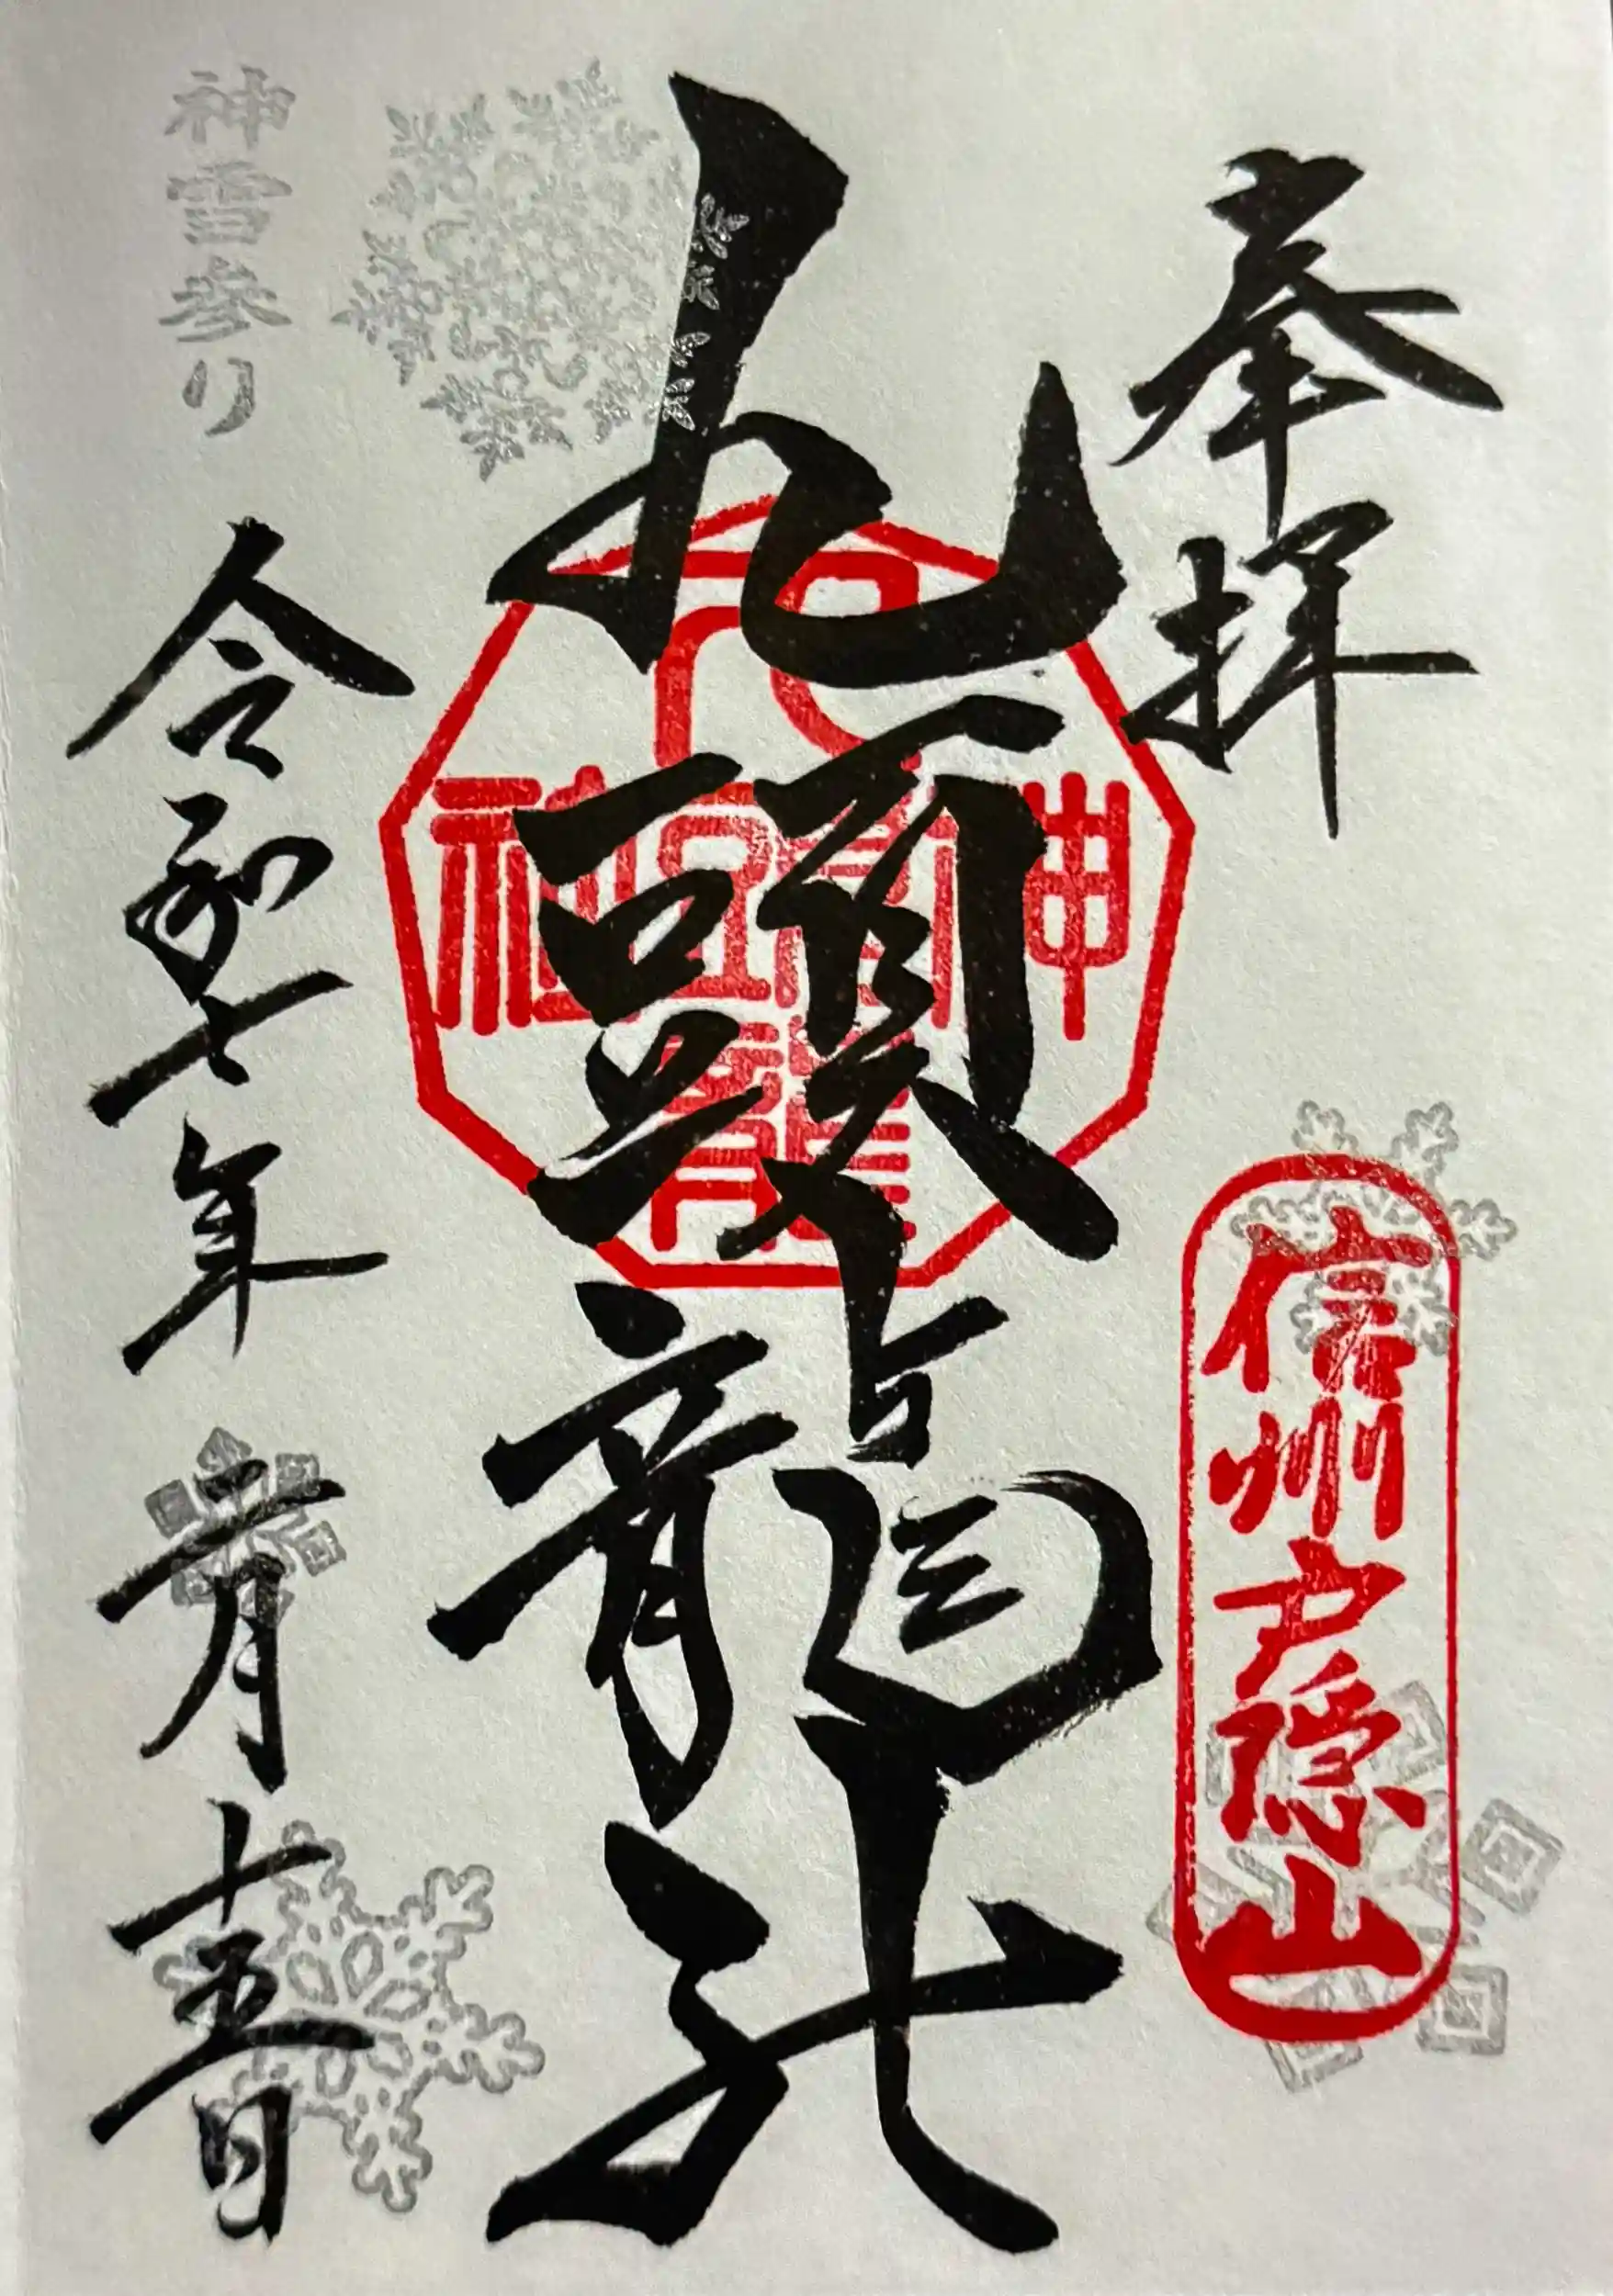 奉拝
信州戸隠山
九頭龍社
九頭龍神社
神雪参り
令和七年二月十五日